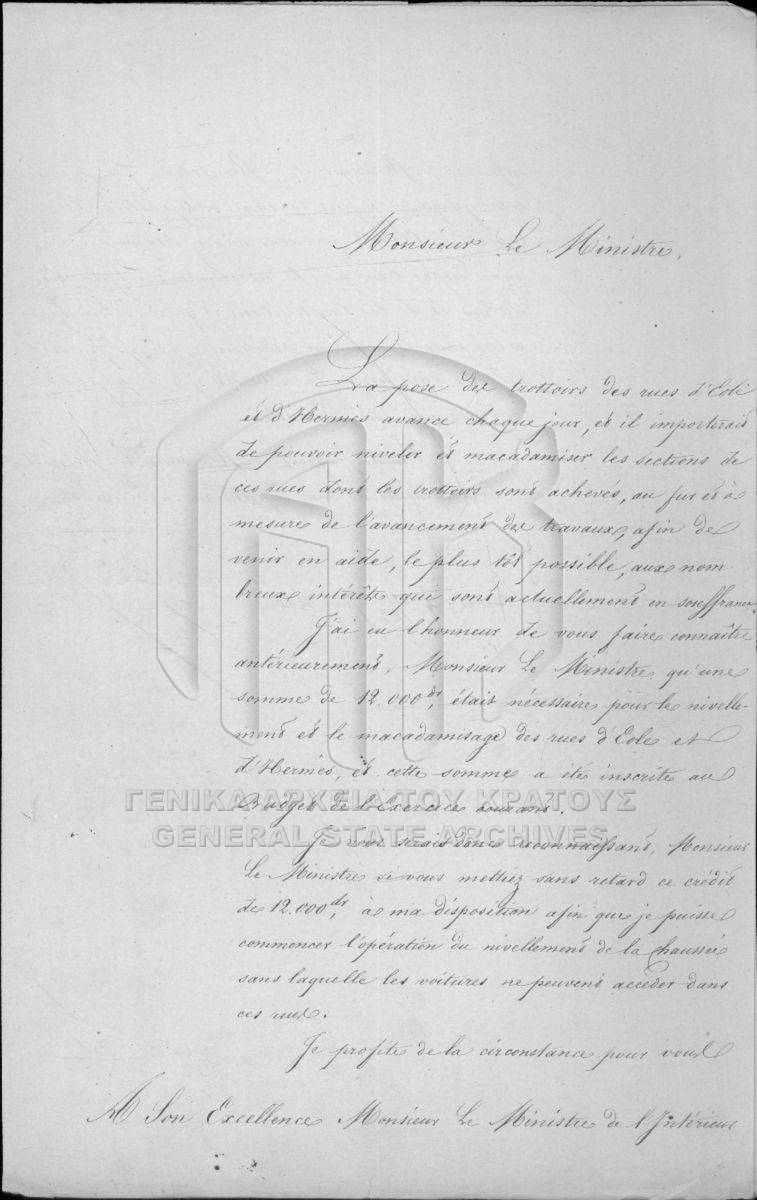 Monsieur Le Ministre,
La pose des trottoirs des rues d'Eole
et d'Hermès avance chaque jour, et il importerait
de pouvoir niveler et macadamiser les sections de
ces rues dont les trottoirs sont achevés, au fur et à
mesure de l'avancement des travaux, afin de
venir en aide, le plus tôt possible, aux nom
breux intérêts qui sont actuellement en souffrance.
J'ai eu l'honneur de vous faire connaître
antérieurement, Monsieur Le Ministre qu'une
somme de 12.000 dr, était nécessaire pour le nivelle-
ment et le macadamisage des rues d'Eole et
d'Hermès, et cette somme a été inscrite au
Budget de l'Exercice courant.
ΓΕΝΙΚΑ ΑΡΧΕΙΑ ΤΟΥ ΚΡΑΤΟΥΣ
GENERAL STATE ARCHIVES
Je vous serais donc reconnaissant, Monsieur
Le Ministre si vous mettiez sans retard ce crédit
de 12.000 dr, à ma disposition afin que je puisse
commencer l'opération du nivellement de la Chaussée
sans laquelle les voitures ne peuvent accéder dans
ces rues.
Je profite de la circonstance pour vous
A Son Excellence Monsieur Le Ministre de l'Intérieur